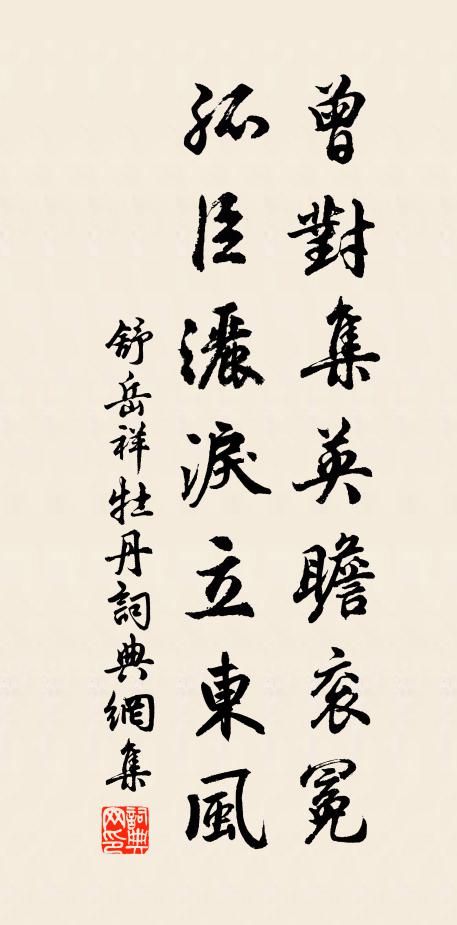 曾對集英瞻衮冕
孤臣灑淚立東風
舒岳祥牡丹詞典網集
詞典网印